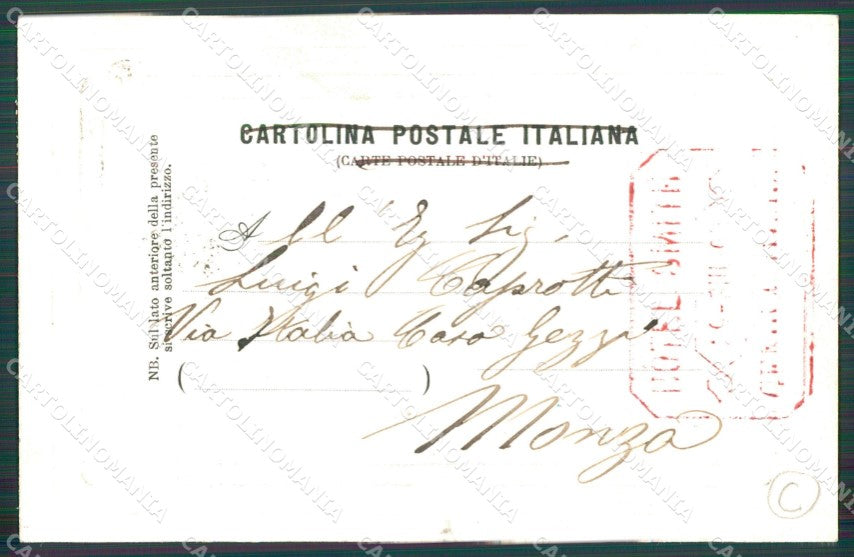 CARTOLINA POSTALE ITALIANA
(CARTE POSTALE D'ITALIE)
NB. Sul lato anteriore della presente
si scrive soltanto l'indirizzo.
All' Eg Sig.
Luigi Caprotti
Via Italia Casa Gezzi
( )
Monza
HOTEL SMITH
C
CARTOLINOMANIA